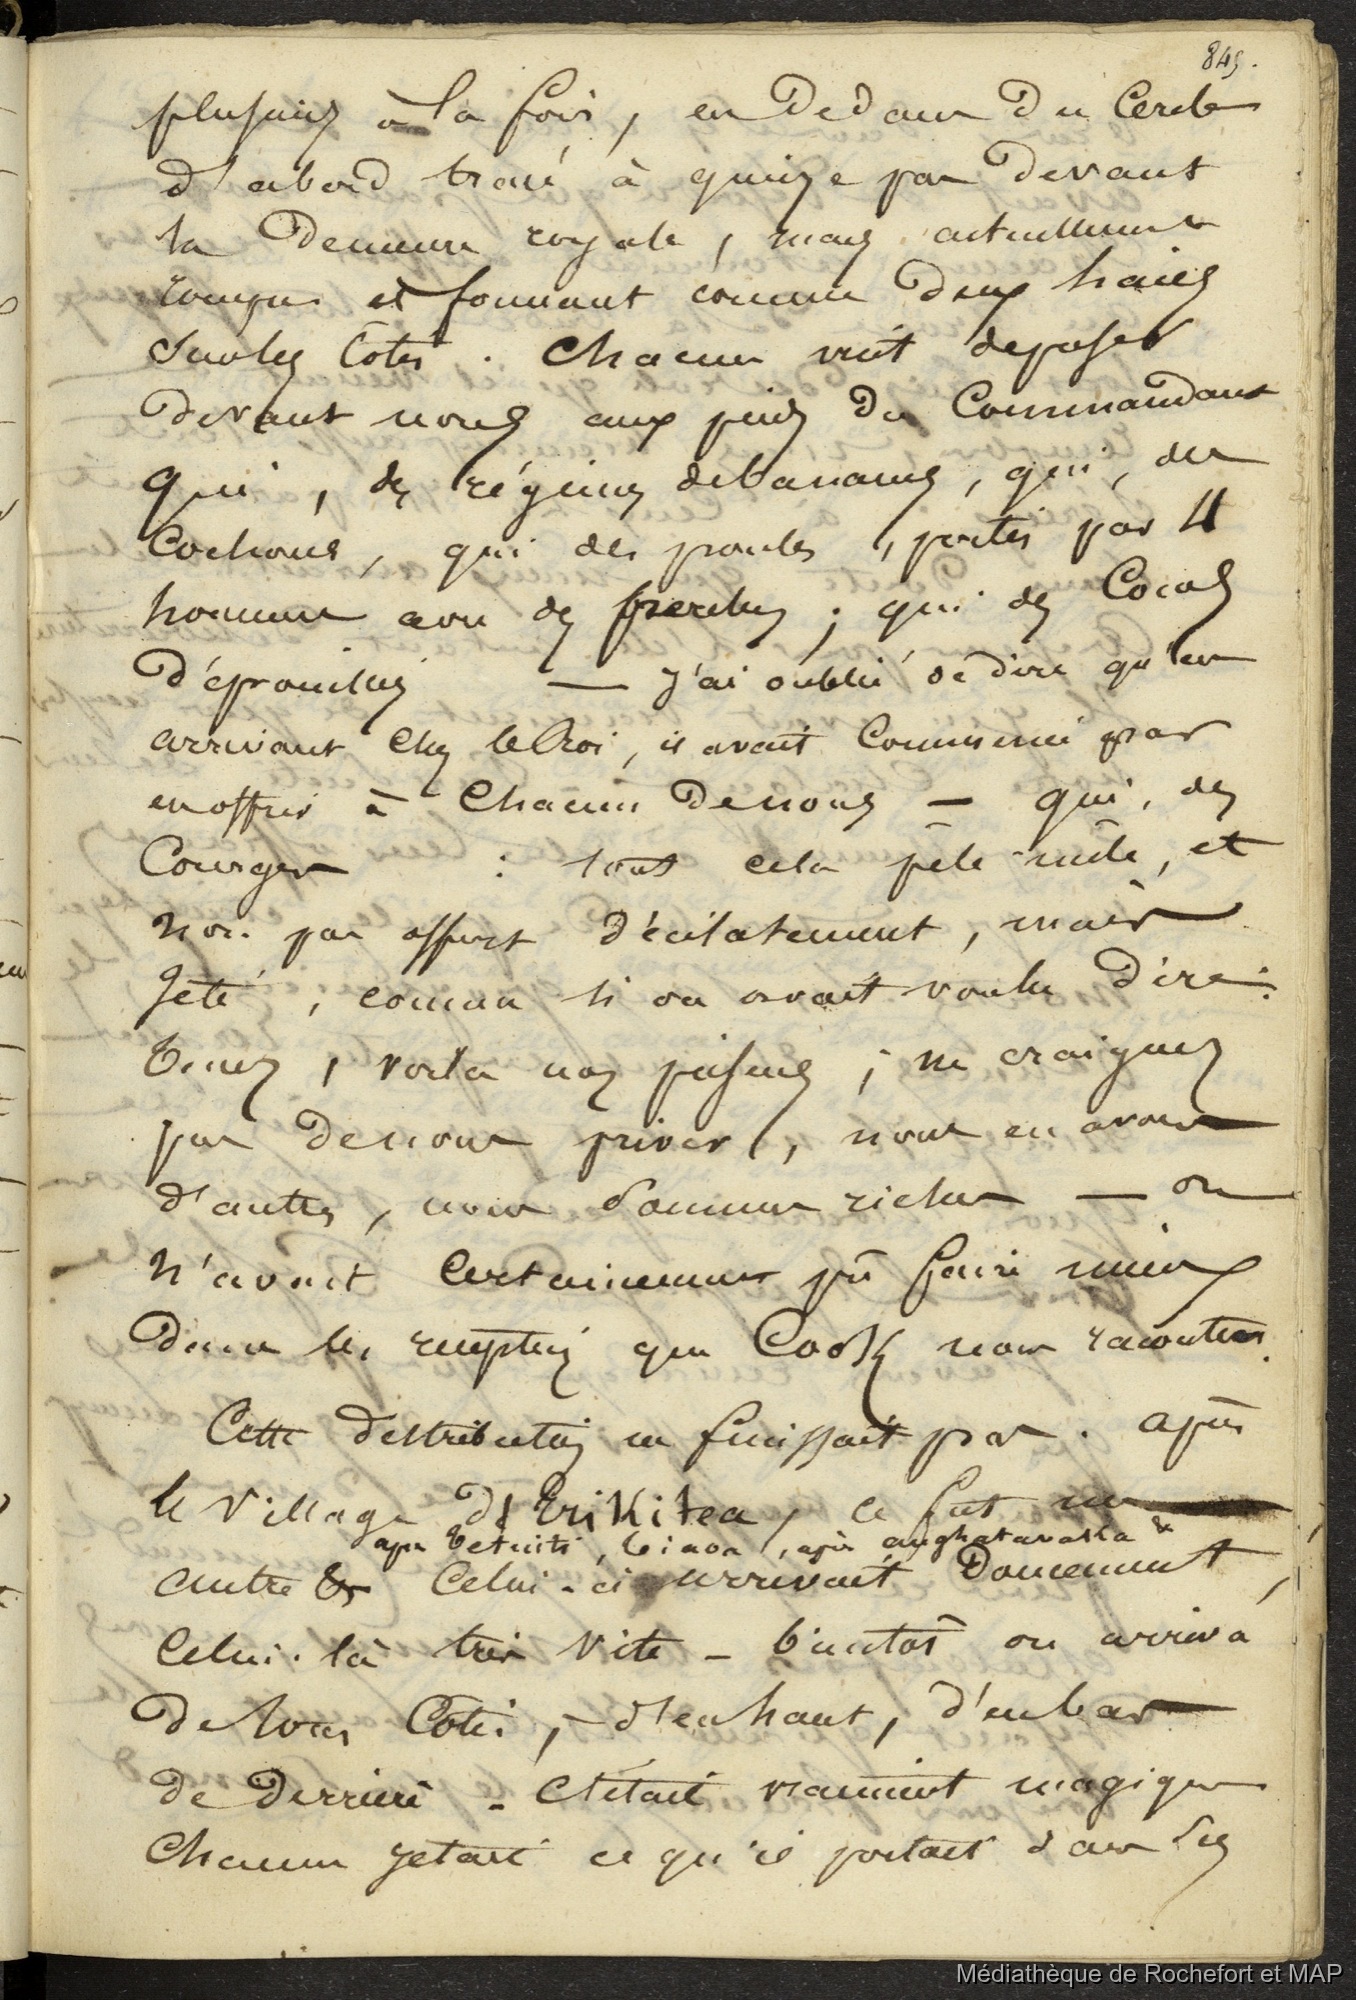 849.
plusieurs à la fois, en dedans du Cercle
d'abord tracé à quinze pas devant
la Demeure royale, mais actuellement
rompu et formant comme deux haies
sur les Cotés. Chacun vint deposer
devant nous aux pieds du Commandant
qui, des régimes de bananes, qui, des
Cochons, qui des poules, portés par 4
hommes avec des perches; qui des Cocos
dépouillés — J'ai oublié de dire qu'en
arrivant chez le Roi, il avait Commencé par
en offrir à Chacun de nous — qui, des
Courges : tout cela pêle mêle, et
non pas offert délicatement, mais
Jeté, comme si on avait voulu dire:
tenez, voilà nos présens; ne craignez
pas de nous priver, nous en avons
d'autres, nous sommes riches — on
n'avait certainement pû faire mieux
dans les receptions que Cook nous racontes.
Cette distribution ne finissait pas. après
le Village de Erikitea, ce fut un
après , après &
autre & Celui-ci arrivait Doucement,
Celui-là très vite — bientôt on arriva
de tous Cotés, — d'en haut, d'en bas
de derrière — C'était vraiment magique
Chacun jetait ce qu'il portait dans les
Médiathèque de Rochefort et MAP